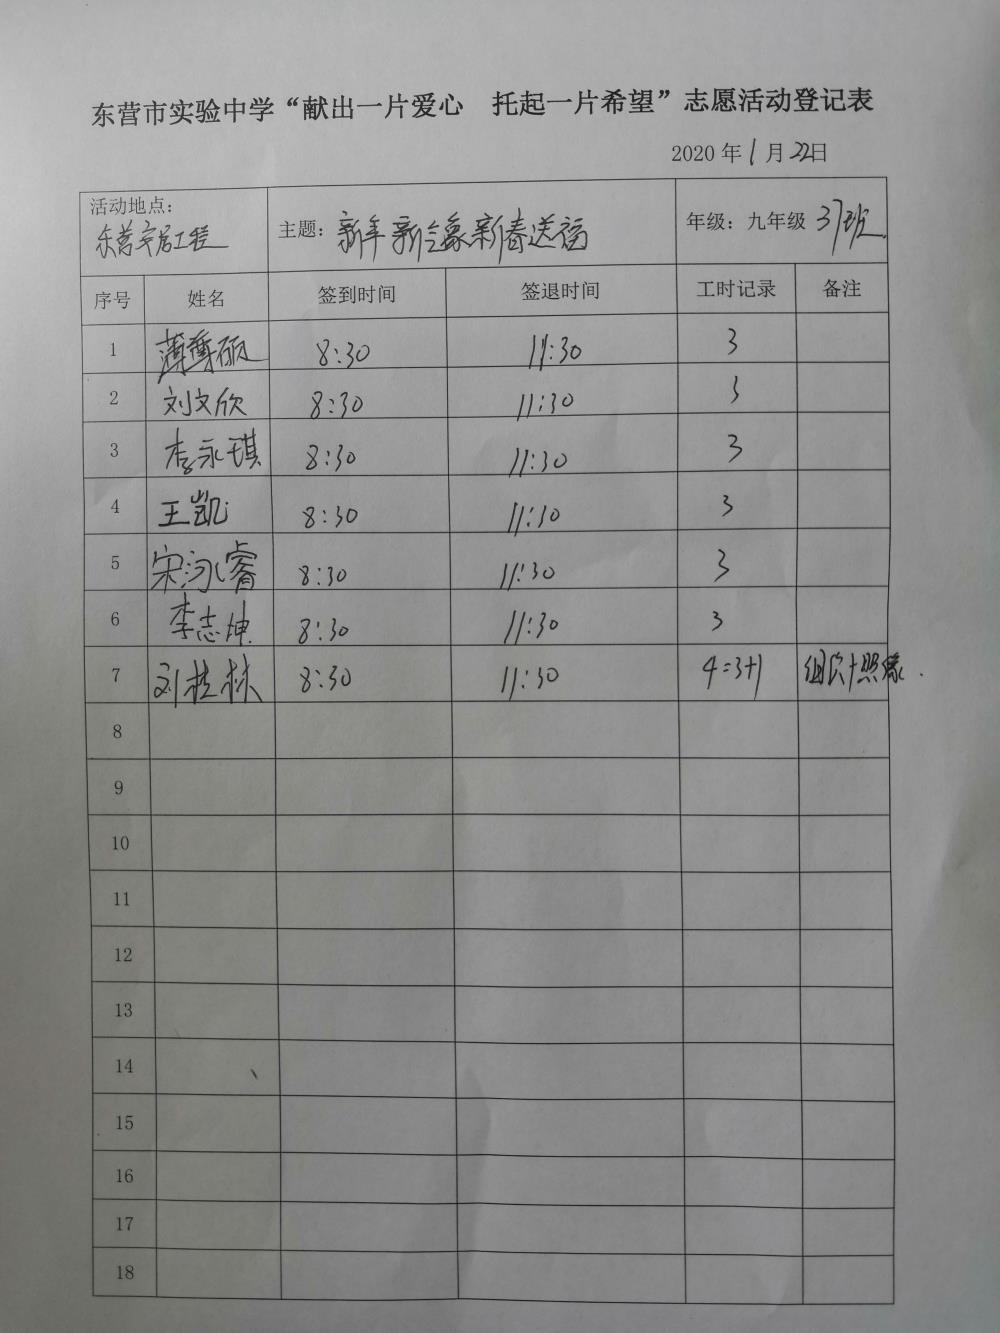 东营市实验中学“献出一片爱心 托起一片希望”志愿活动登记表
2020年1月22日
活动地点: 东营安居工程 主题: 新年新气象新春送福 年级: 九年级 37班
序号 姓名 签到时间 签退时间 工时记录 备注
1 硕 8:30 11:30 3
2 刘文欣 8:30 11:30 3
3 李永琪 8:30 11:30 3
4 王凯 8:30 11:30 3
5 宋泓睿 8:30 11:30 3
6 李志坤 8:30 11:30 3
7 刘桂林 8:30 11:30 4=3+1 组织+照像.
8
9
10
11
12
13
14
15
16
17
18